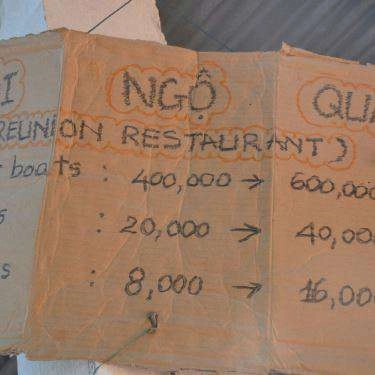 I NGỘ QU
REUNION RESTAURANT)
boats : 400,000 → 600,000
s : 20,000 → 40,000
s : 8,000 → 16,000